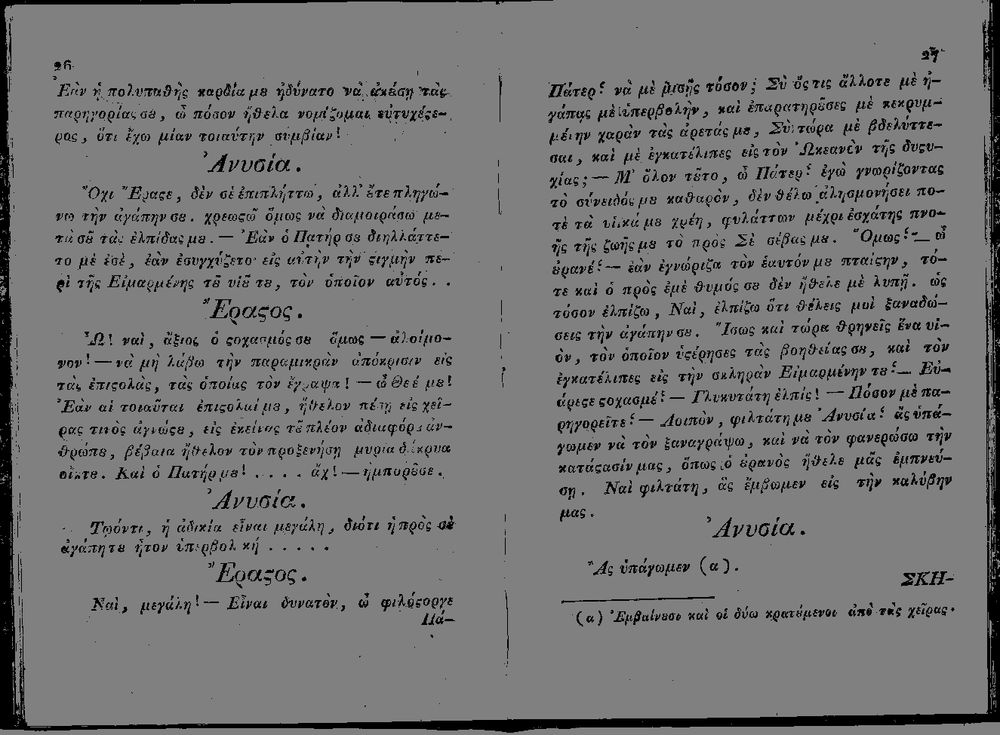 26
Ἐὰν ἡ πολυπαθὴς καρδία μȣ ἠδύνατο νὰ ἀκέσῃ τὰς
παρηγορίας σȣ, ὦ πόσον ἤθελα νομίζομαι εὐτυχέςε-
ρος, ὅτι ἔχω μίαν τοιαύτην συμβίαν!
Ἀνυσία.
Ὄχι Ἔραςε, δὲν σὲ ἐπιπλήττω, ἀλλ' ȣ̓́τε πληγώ-
νω τὴν ἀγάπην σȣ. χρεωςῶ ὅμως νὰ διαμοιράσω με-
τὰ σȣ͂ τὰς ἐλπίδας μȣ. — Ἐὰν ὁ Πατήρ σȣ διηλλάττε-
το μὲ ἐσὲ, ἐὰν ἐσυγχύζετο εἰς αὐτὴν τὴν ςιγμὴν πε-
ρὶ τῆς Εἱμαρμένης τȣ͂ υἱȣ͂ τȣ, τὸν ὁποῖον αὐτός. .
Ἔραςος.
Ὢ! ναὶ, ἄξιος ὁ ςοχασμός σȣ ὅμως — ἀλοίμο-
νον! — νὰ μὴ λάβω τὴν παραμικρὰν ἀπόκρισιν εἰς
τὰς ἐπιςολὰς, τὰς ὁποίας τὸν ἔγραψα! — ὦ Θεέ μȣ!
Ἐὰν αἱ τοιαῦται ἐπιςολαί μȣ, ἤθελον πέσῃ εἰς χεῖ-
ρας τινὸς ἀγνώςȣ, εἰς ἐκείνας τȣ͂ πλέον ἀδιαφόρȣ ἀν-
θρώπȣ, βέβαια ἤθελον τὸν προξενήσῃ μυρία δάκρυα
οἴκτȣ. Καὶ ὁ Πατήρ μȣ! . . . . ἄχ! — ἠμπορȣ͂σε.
Ἀνυσία.
Τῳόντι, ἡ ἀδικία εἶναι μεγάλη, διότι ἡ πρὸς σὲ
ἀγάπη τȣ ἦτον ὑπερβολική . . . . .
Ἔραςος.
Ναὶ, μεγάλη! — Εἶναι δυνατὸν, ὦ φιλόςοργε
Πά-
27
Πάτερ! νὰ μὲ μισῇς τόσον; Σὺ ὅςτις ἄλλοτε μὲ ἠ-
γάπας μὲ ὑπερβολὴν, καὶ ἐπαρατηρȣ͂σες μὲ κεκρυμ-
μένην χαρὰν τὰς ἀρετάς μȣ, Σὺ τώρα μὲ βδελύττε-
σαι, καὶ μὲ ἐγκατέλιπες εἰς τὸν Ὠκεανὸν τῆς δυςυ-
χίας; — Μ' ὅλον τȣ͂το, ὦ Πάτερ! ἐγὼ γνωρίζοντας
τὸ συνειδός μȣ καθαρὸν, δὲν θέλω ἀλησμονήσει πο-
τὲ τὰ υἱικά μȣ χρέη, φυλάττων μέχρι ἐσχάτης πνο-
ῆς τῆς ζωῆς μȣ τὸ πρὸς Σὲ σέβας μȣ. Ὅμως! — ὦ
ȣ̓ρανέ! — ἐὰν ἐγνώριζα τὸν ἑαυτόν μȣ πταίςην, τό-
τε καὶ ὁ πρὸς ἐμὲ θυμός σȣ δὲν ἤθελε μὲ λυπῇ. ὡς
τόσον ἐλπίζω, Ναὶ, ἐλπίζω ὅτι θέλεις μοὶ ξαναδώ-
σεις τὴν ἀγάπην σȣ. Ἴσως καὶ τώρα θρηνεῖς ἕνα υἱ-
ὸν, τὸν ὁποῖον ὑςέρησες τὰς βοηθείας σȣ, καὶ τὸν
ἐγκατέλιπες εἰς τὴν σκληρὰν Εἱμαρμένην τȣ! — Εὐ-
άρεςε ςοχασμέ! — Γλυκυτάτη ἐλπίς! — Πόσον μὲ πα-
ρηγορεῖτε! — Λοιπὸν, φιλτάτη μȣ Ἀνυσία! ἂς ὑπά-
γωμεν νὰ τὸν ξαναγράψω, καὶ νὰ τὸν φανερώσω τὴν
κατάςασίν μας, ὅπως ὁ ȣ̓ρανὸς ἤθελε μᾶς ἐμπνεύ-
σῃ. Ναὶ φιλτάτη, ἂς ἔμβωμεν εἰς τὴν καλύβην
μας.
Ἀνυσία.
Ἂς ὑπάγωμεν (α).
ΣΚΗ-
(α) Ἐμβαίνȣσι καὶ οἱ δύω κρατȣ́μενοι ἀπὸ τὰς χεῖρας.